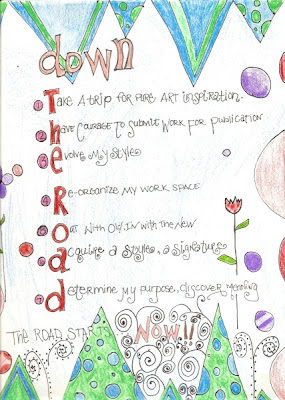 down
1 Take A trip FOR PURE ART inspiration.
2 have Courage To Submit Work FOR Publication
3 evolve My Style
4 Re-organize My work SPACE
5 out With Old, In with the New
6 acquire a Style, a signature
7 determine my purpose, discover meaning
The ROAD STARTS NOW!!